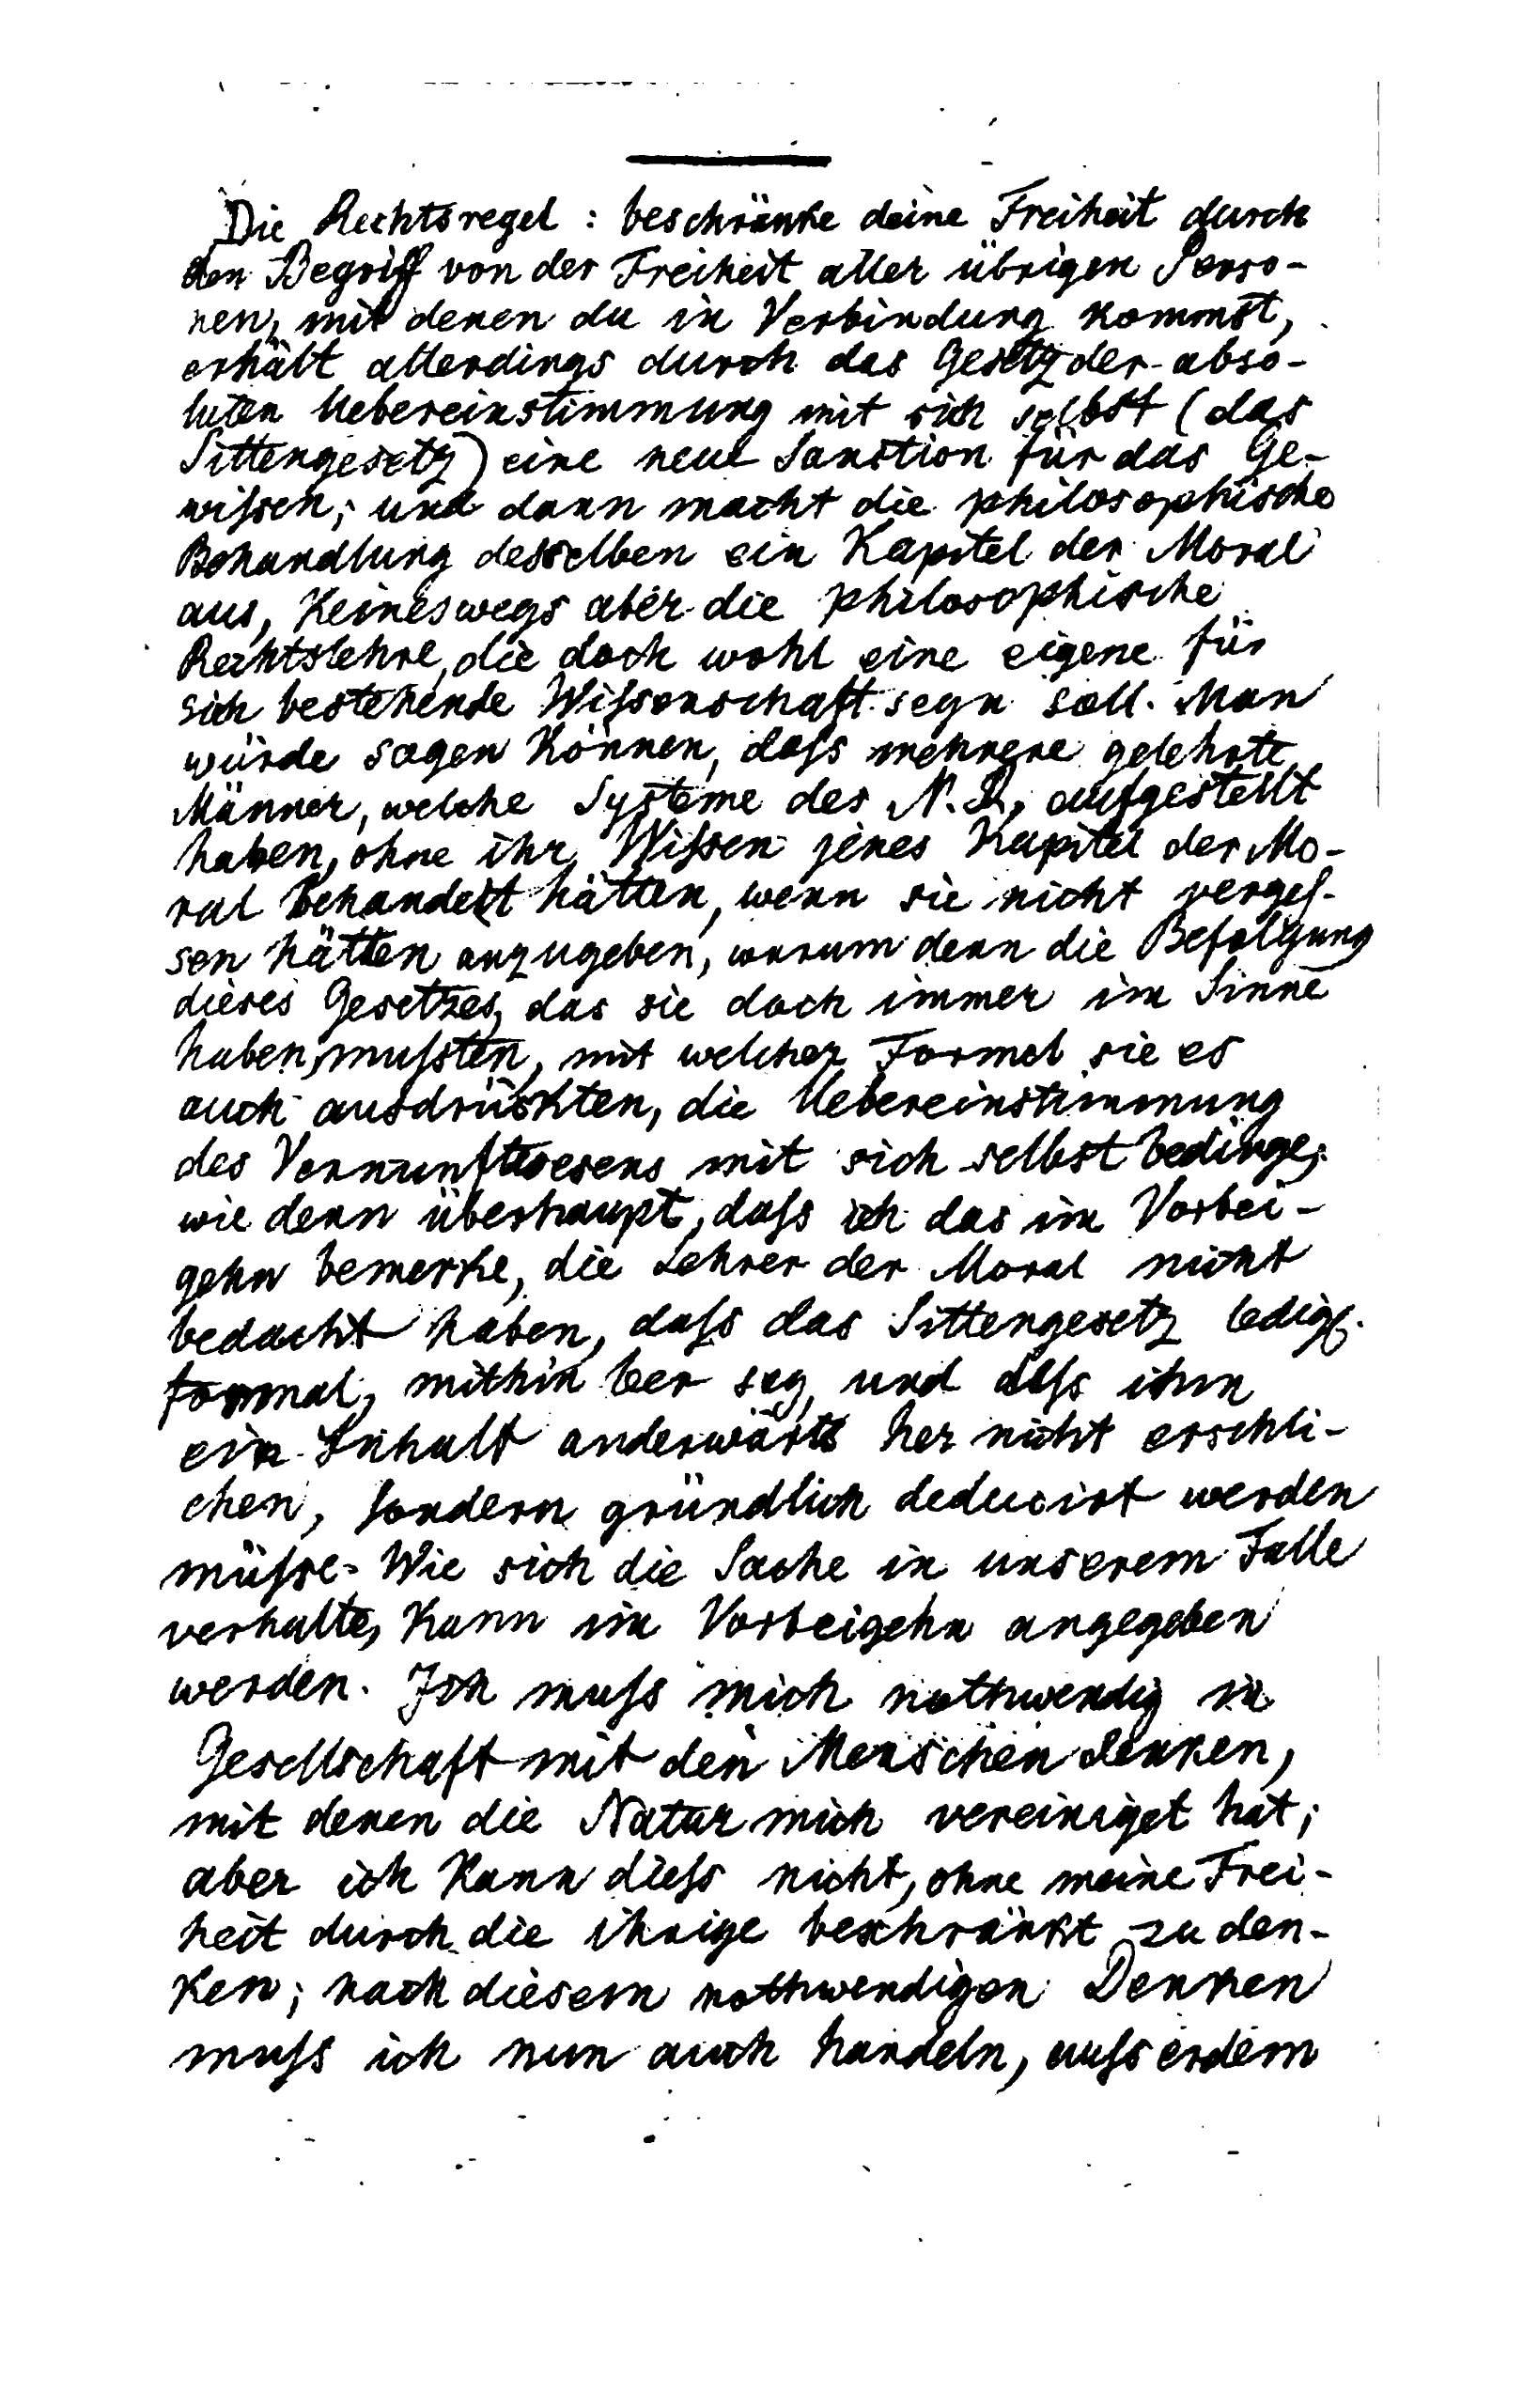 Die Rechtsregel: beschränke deine Freiheit durch
den Begriff von der Freiheit aller übrigen Perso-
nen, mit denen du in Verbindung kommst,
erhält allerdings durch das Gesetz der abso-
luten Uebereinstimmung mit sich selbst (das
Sittengesetz) eine neue Sanction für das Ge-
wiſsen; und dann macht die philosophische
Behandlung desselben ein Kapitel der Moral
aus, keineswegs aber die philosophische
Rechtslehre, die doch wohl eine eigene für
sich bestehende Wiſsenschaft seyn soll. Man
würde sagen können, daſs mehrere gelehrte
Männer, welche Systeme des N. R. aufgestellt
haben, ohne ihr Wiſsen jenes Kapitel der Mo-
ral behandelt hätten, wenn sie nicht vergeſ-
sen hätten anzugeben, warum denn die Befolgung
dieses Gesetzes, das sie doch immer im Sinne
haben muſsten, mit welcher Formel sie es
auch ausdrückten, die Uebereinstimmung
des Vernunftwesens mit sich selbst bedinge;
wie denn überhaupt, daſs ich das im Vorbei-
gehn bemerke, die Lehrer der Moral nicht
bedacht haben, daſs das Sittengesetz ledigl.
formal, mithin leer sey, und daſs ihm
ein Inhalt anderwärts her nicht erschli-
chen, sondern gründlich deducirt werden
müſse. Wie sich die Sache in unserem Falle
verhalte, kann im Vorbeigehn angegeben
werden. Ich muſs mich nothwendig in
Gesellschaft mit den Menschen denken,
mit denen die Natur mich vereiniget hat;
aber ich kann dieſs nicht, ohne meine Frei-
heit durch die ihrige beschränkt zu den-
ken; nach diesem nothwendigen Denken
muſs ich nun auch handeln, auſserdem